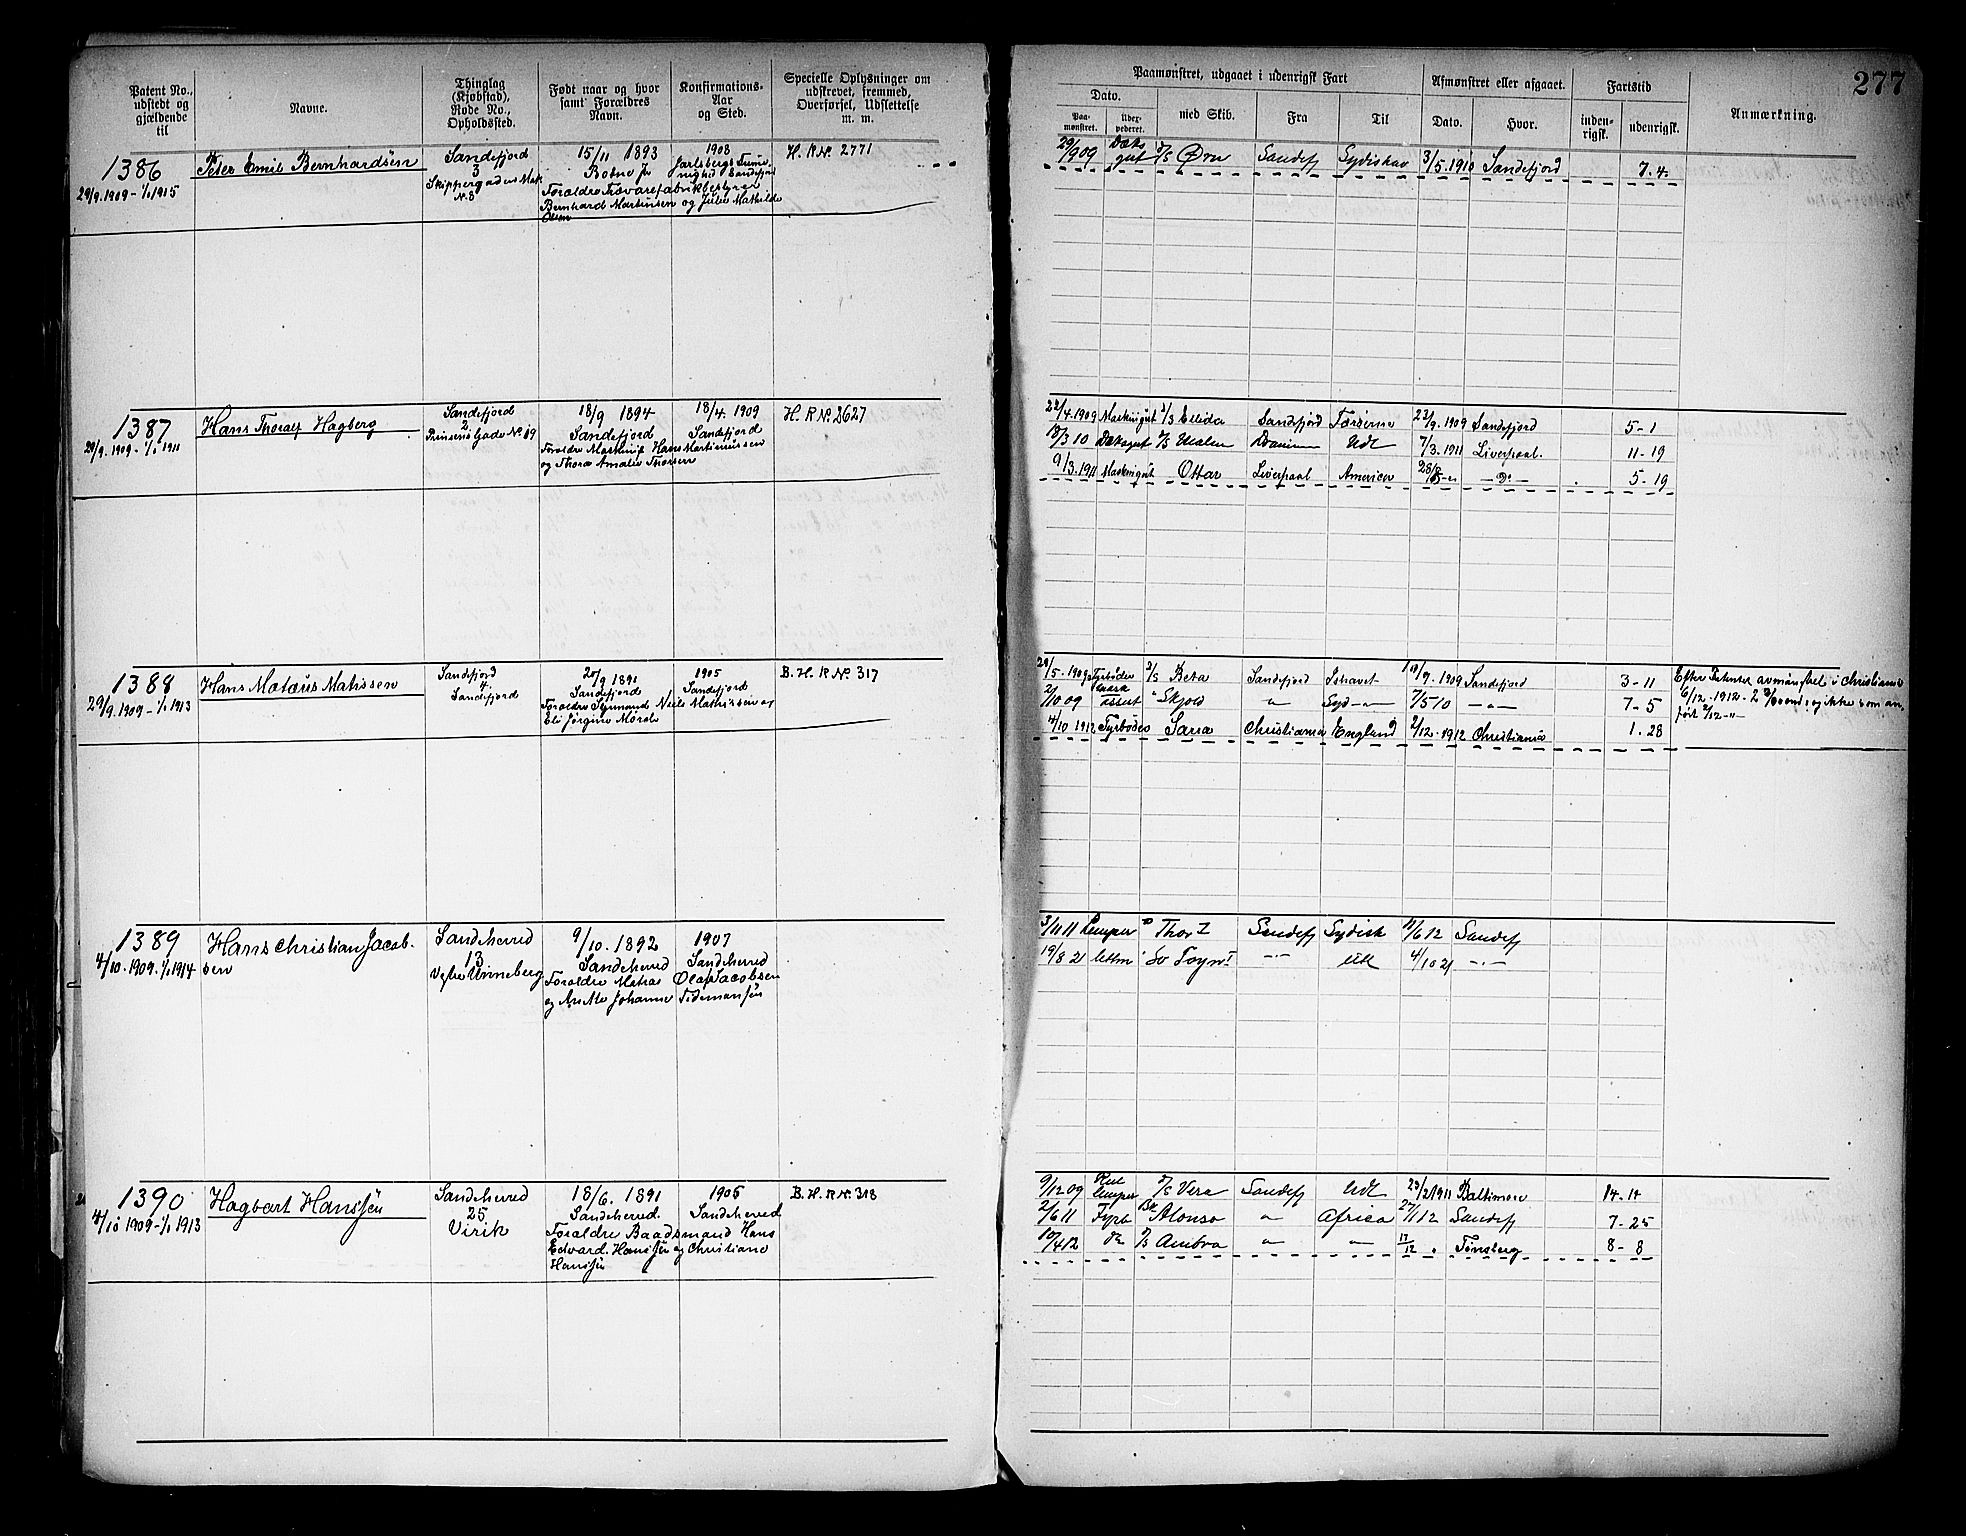 277
Patent No., udstedt og gjældende til
Navne.
Thinglag (Kjøbstad), Rode No., Opholdssted.
Født naar og hvor samt Forældres Navn.
Konfirmations-Aar og Sted.
Specielle Oplysninger om udskrevet, fremmed, Overførsel, Udslettelse m. m.
Paamønstret, udgaaet i udenrigsk Fart
Afmønstret eller afgaaet.
Fartstid
Anmærkning.
Dato.
Paa-mønstret.
med Skib.
Fra
Til
Dato.
Hvor.
inden-rigsk.
udenrigsk.
1386
29/9.1909 - 1/1 1915
Peter Emil Bernhardsen
Sandefjord
3
Skippergadens
No 8
15/11 1893
Botne
Forældre
Bernhard Martinsen og Julie Mathilde
Olsen
1908
Jarlsbergs
Sandefjord
H. R No. 2771
29/9 09 Dæksgut Ørn Sandefj Sydishav 3/5.1910 Sandefjord 7. 4
1387
29/9.1909 - 1/1 1911
Hans Thoralf Hagberg
Sandefjord
2
Prinsens Gade No 19
18/9 1894
Sandefjord
Forældre Maskinist Hans Martinussen
og Thora Amalie Thorsen
18/4. 1909
Sandefjord
H. R No. 2627
22/4.1909 Maskingut Ellida Sandefjord Færøerne 23/9.1909 Sandefjord 5-1
18/3 10 Dæksgut Udl 7/3.1911 Liverpool. 11-19
9/3.1911 Maskingut Ottar Liverpool America 28/8 - Do - 5-19
1388
29/9.1909 - 1/1 1913
Hans Matæus Matissen
Sandefjord
4
Sandefjord
25/9 1891
Sandefjord
Forældre Sjømand Niels Mathissen og
Eli Jørgine
1905
Sandefjord
B. H. R No. 317
28/5.1909 Fyrbøder Beta Sandefjord Ishavet 19/9.1909 Sandefjord 3-11
2/10 09 Skjold - " - Syd - " - 7/5 10 - " - 7-5
4/10 1912 Fyrbøder Saria Christiania England 2/12.1912 Christiania 1.28
Efter Patentet avmønstret i Christiania
6/12.1912 - og ikke som an-
ført 2/12 - " -
1389
4/10.1909 - 1/1 1914
Hans Christian Jacob-
sen
Sandeherred
13
Vestre Unneberg
9/10. 1892
Sandeherred
Forældre Matros Olaf Jacobsen
og Anette Johanne Tidemansen
1907
Sandeherred
3/11 11 Lemper Thor I Sandefj Sydish 11/6 12 Sandefj
19/8 21 lettm - " - Udl 4/10 21 - " -
1390
4/10 1909 - 1/1 1913
Hagbart Hanssen
Sandeherred
25
Virik
18/6. 1891
Sandeherred.
Forældre Baadsmand Hans
Edvard Hanssen og Christiane
Hanssen
1905
Sandeherred
B. H. R No. 318
9/12 09 Kullemper Vera Sandefj Udl 23/2 1911 Baltimore 14-14
2/6 11 Fyrb Bk Alonso " Africa 27/1 12 Sandefj 7-25
10/4 12 do Ambra " " 17/12 " Tønsberg 8-8